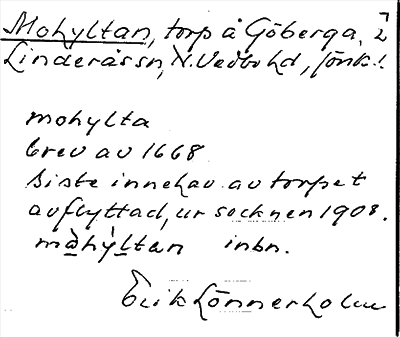 Mohyltan, torp å Göberga, 2
Linderås sn, N. Vedbo hd, Jönk. l.
mohylta
brev av 1668
siste innehav. av torpet
avflyttad, ur socknen 1908.
màhỳltan inbn.
Erik Lönnerholm